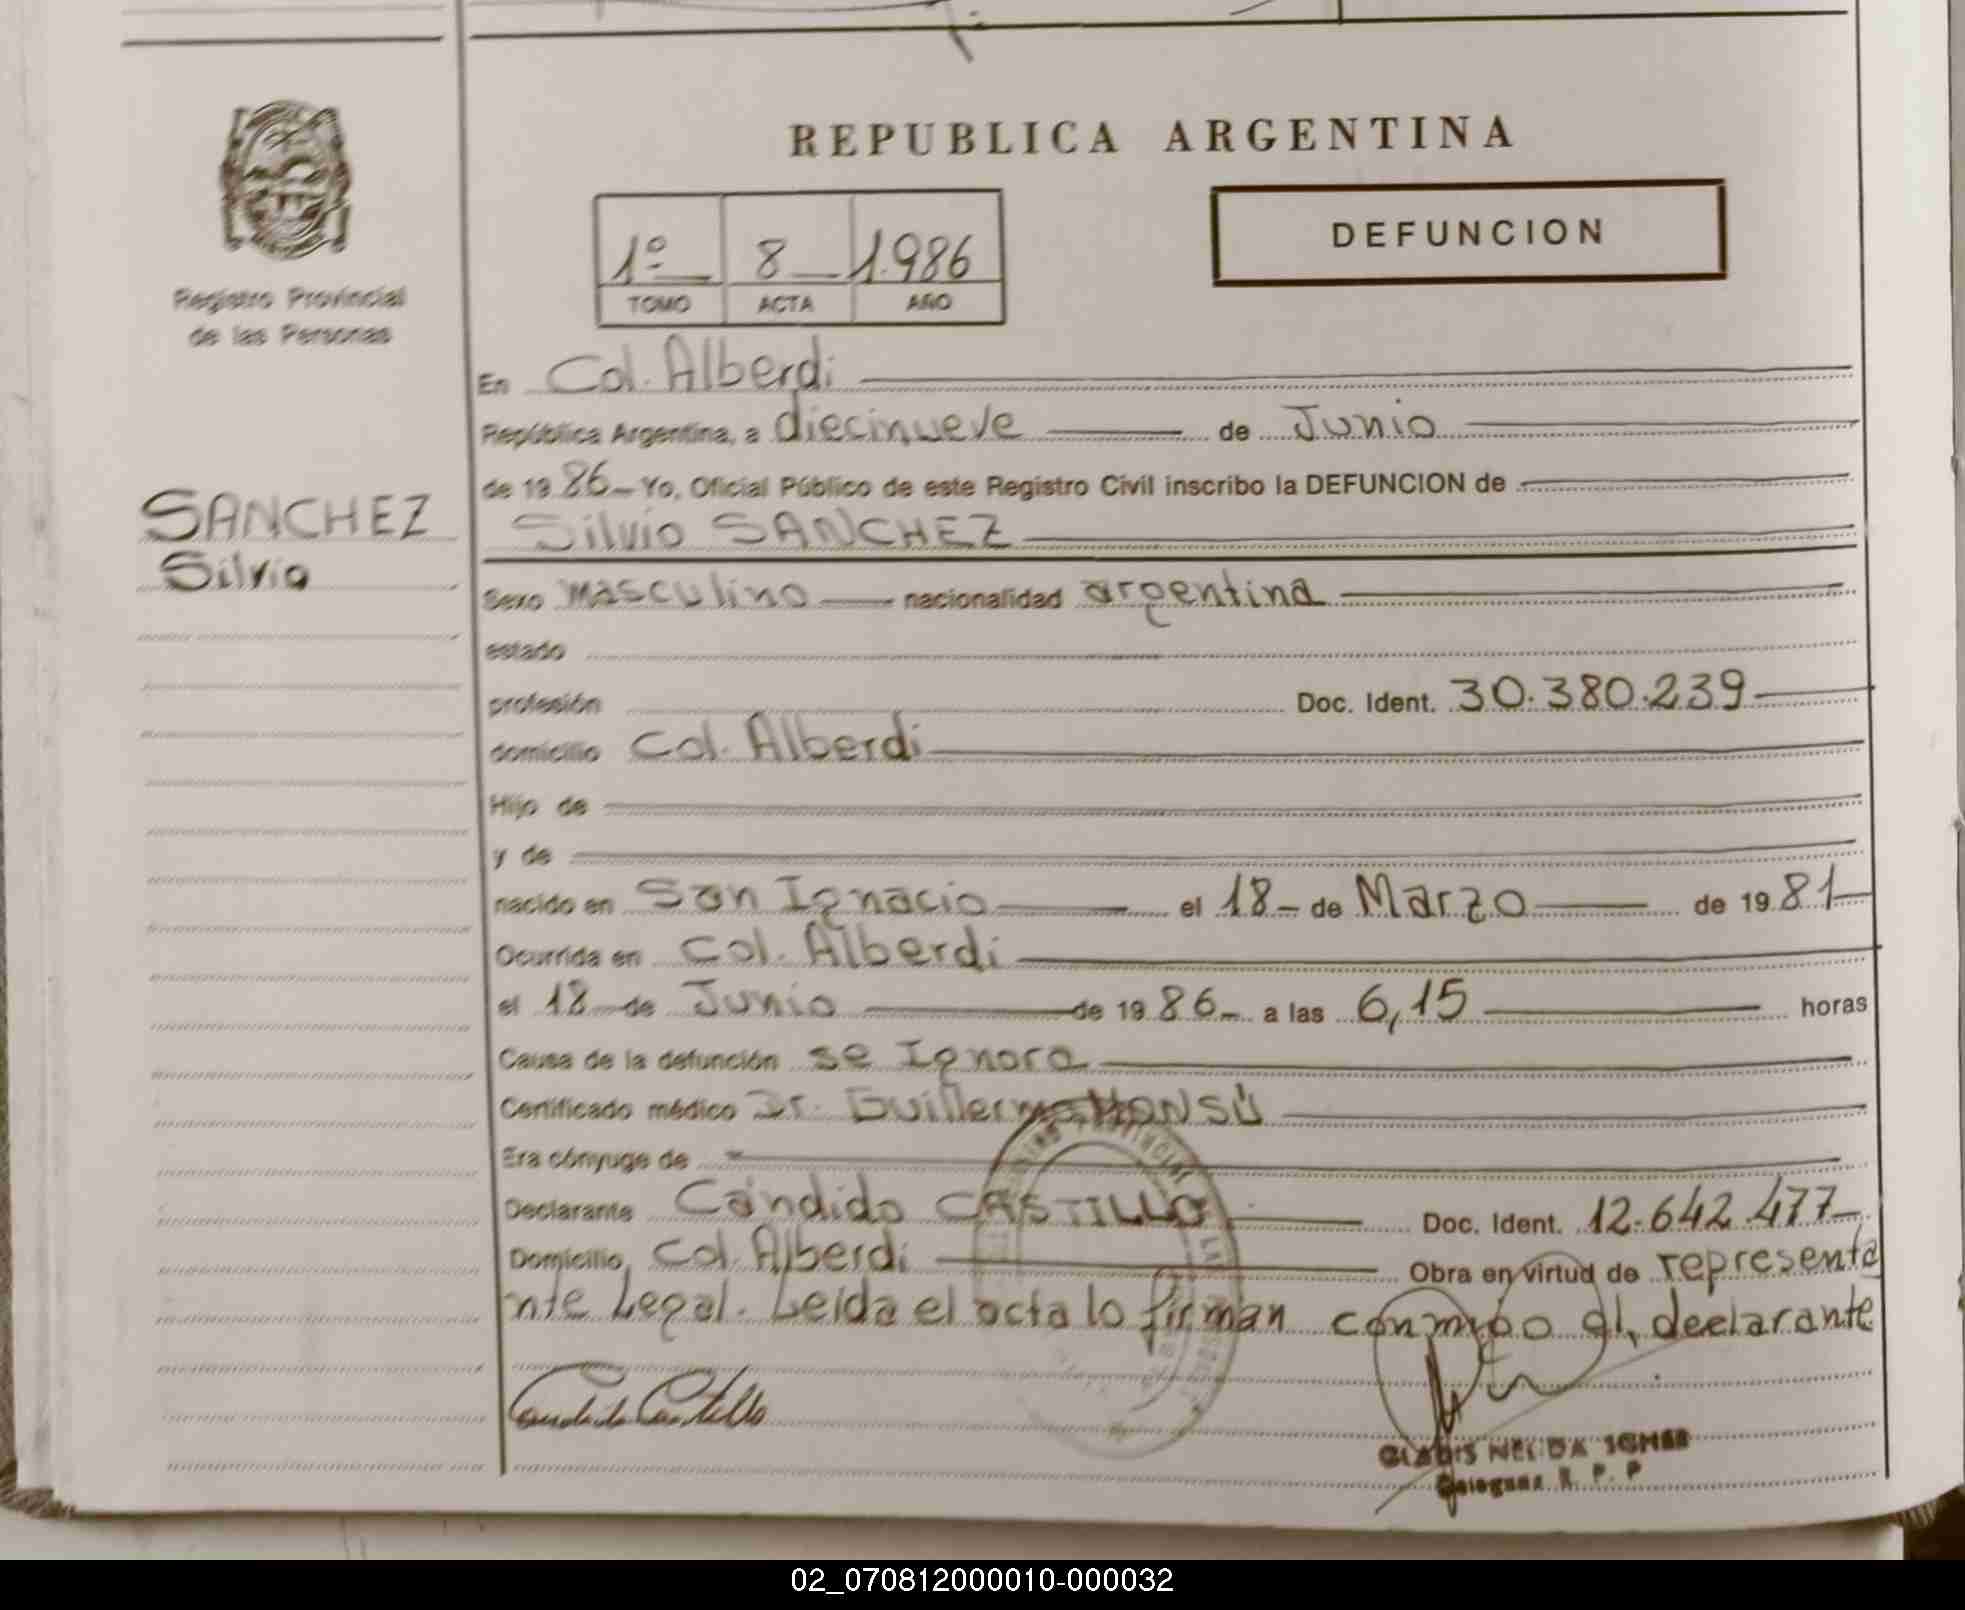 REPUBLICA ARGENTINA
1º 8 1.986
TOMO ACTA AÑO
DEFUNCION
Registro Provincial
de las Personas
SANCHEZ
Silvio
En Col. Alberdi
República Argentina, a diecinueve de Junio
de 1986 Yo, Oficial Público de este Registro Civil inscribo la DEFUNCION de
Silvio SANCHEZ
Sexo masculino nacionalidad argentina
estado
profesión Doc. Ident. 30.380.239
domicilio Col. Alberdi
Hijo de
y de
nacido en San Ignacio el 18 de Marzo de 1981
Ocurrida en Col. Alberdi
el 18 de Junio de 1986 a las 6,15 horas
Causa de la defunción se Ignora
Certificado médico Dr. Guillermo
Era cónyuge de
Declarante Cándido CASTILLO Doc. Ident. 12.642.477
Domicilio Col. Alberdi Obra en virtud de representa
nte Legal. Leida el acta lo firman conmigo el declarante
Candido Castillo
GLADIS NELIDA
R. P. P
02_070812000010-000032